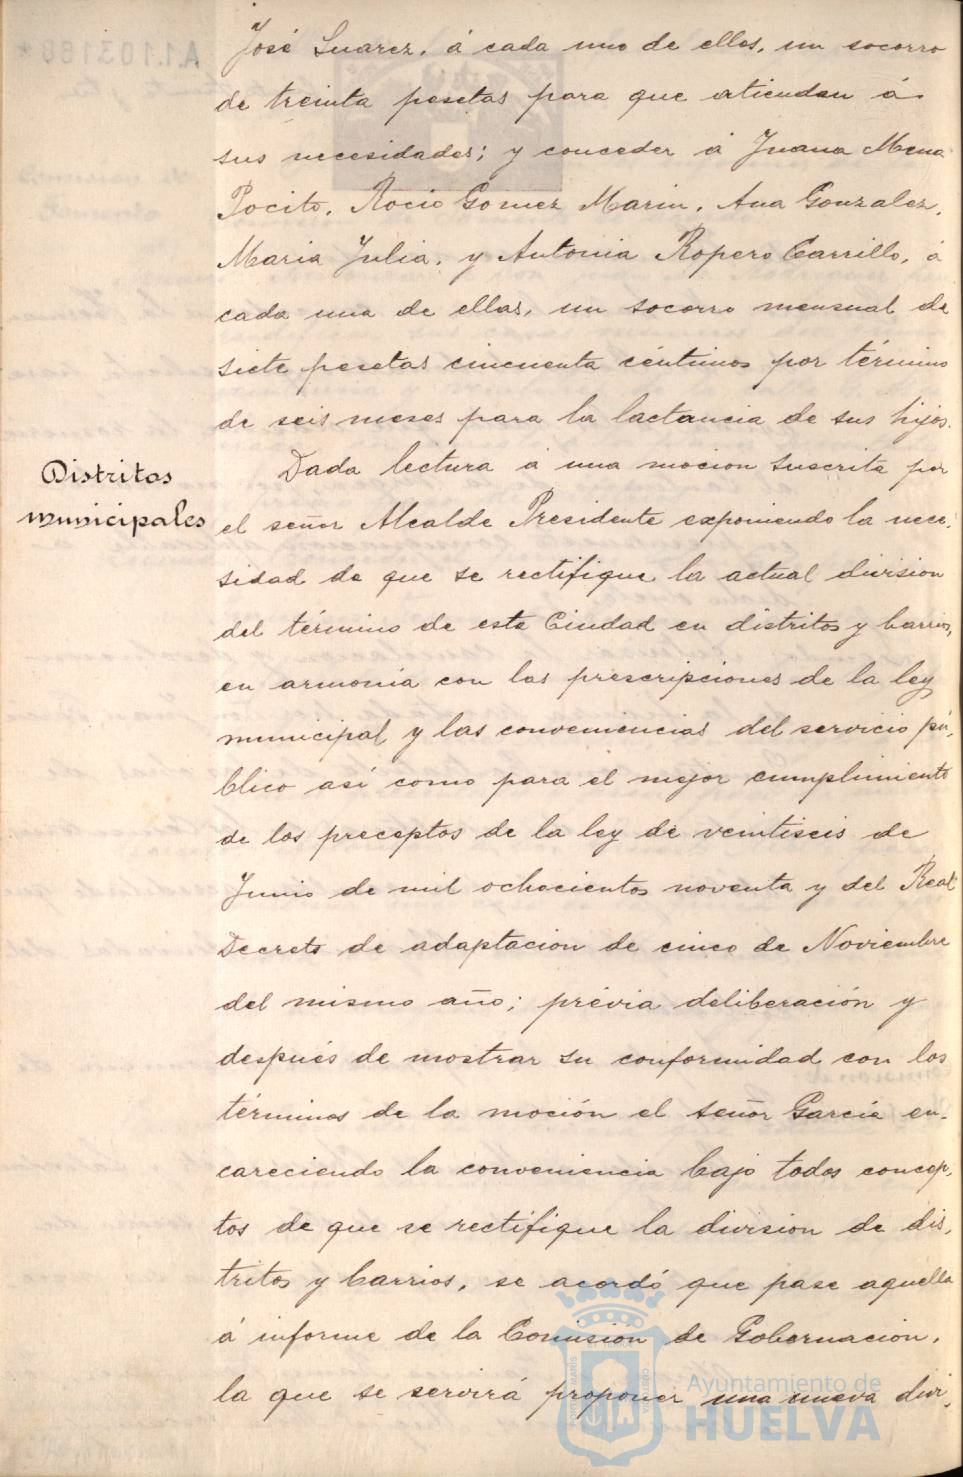 José Suarez, á cada uno de ellos, un socorro
de treinta pesetas para que atiendan á
sus necesidades; y conceder á Juana Mena
Pocito, Rocio Gomez Marin, Ana Gonzalez,
Maria Julia, y Antonia Ropero Carrillo, á
cada una de ellas, un socorro mensual de
siete pesetas cincuenta céntimos por término
de seis meses para la lactancia de sus hijos.
Distritos
municipales
Dada lectura á una mocion suscrita por
el señor Alcalde Presidente exponiendo la nece-
sidad de que se rectifique la actual division
del término de esta Ciudad en distritos y barrios,
en armonia con las prescripciones de la ley
municipal y las conveniencias del servicio pú-
blico así como para el mejor cumplimiento
de los preceptos de la ley de veintiseis de
Junio de mil ochocientos noventa y del Real
Decreto de adaptacion de cinco de Noviembre
del mismo año; prévia deliberación y
después de mostrar su conformidad con los
términos de la moción el señor García en-
careciendo la conveniencia bajo todos concep-
tos de que se rectifique la division de dis-
tritos y barrios, se acordó que pase aquella
á informe de la Comisión de Gobernación,
la que se servirá proponer una nueva divi-
Ayuntamiento de
HUELVA